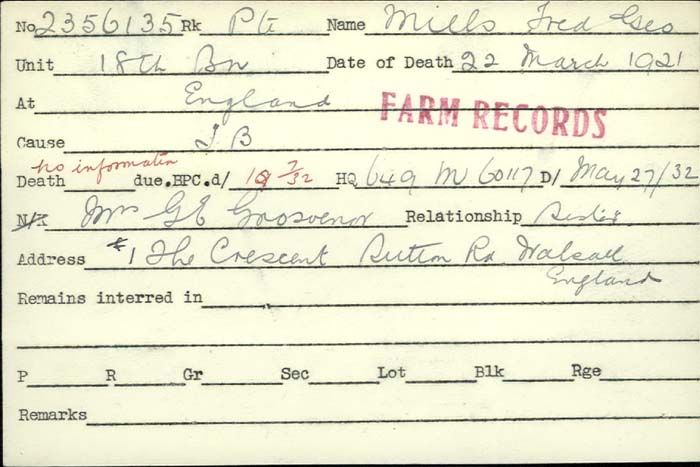 No 2356135 Rk Pte Name Mills Fred Geo
Unit 18th Bn Date of Death 22 March 1921
At England
FARM RECORDS
Cause T B
Death no information due.BPC.d/ 19 7/32 HQ 649 M 60117 D/ May 27/32
N/K Mrs G E Grosvenor Relationship Sister
Address #1 The Crescent Sutton Rd Walsall
England
Remains interred in
P R Gr Sec Lot Blk Rge
Remarks